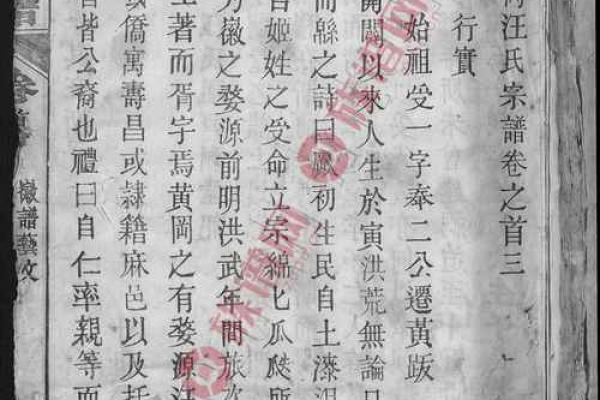 汪氏宗譜卷之首三
行實
始祖受一字奉二公遷黃跋
開闢以來人生於寅洪荒無論
而緜之詩曰厥初生民自土漆沮
姬姓之受命立宗綿匕瓜瓞所
徽之婺源前明洪武年間旅次
土著而胥宇焉黃岡之有婺源汪
或僑寓壽昌或隸籍麻邑以及托
皆公裔也禮曰自仁率親等而
譜
徽譜藝文
族譜网
族譜网